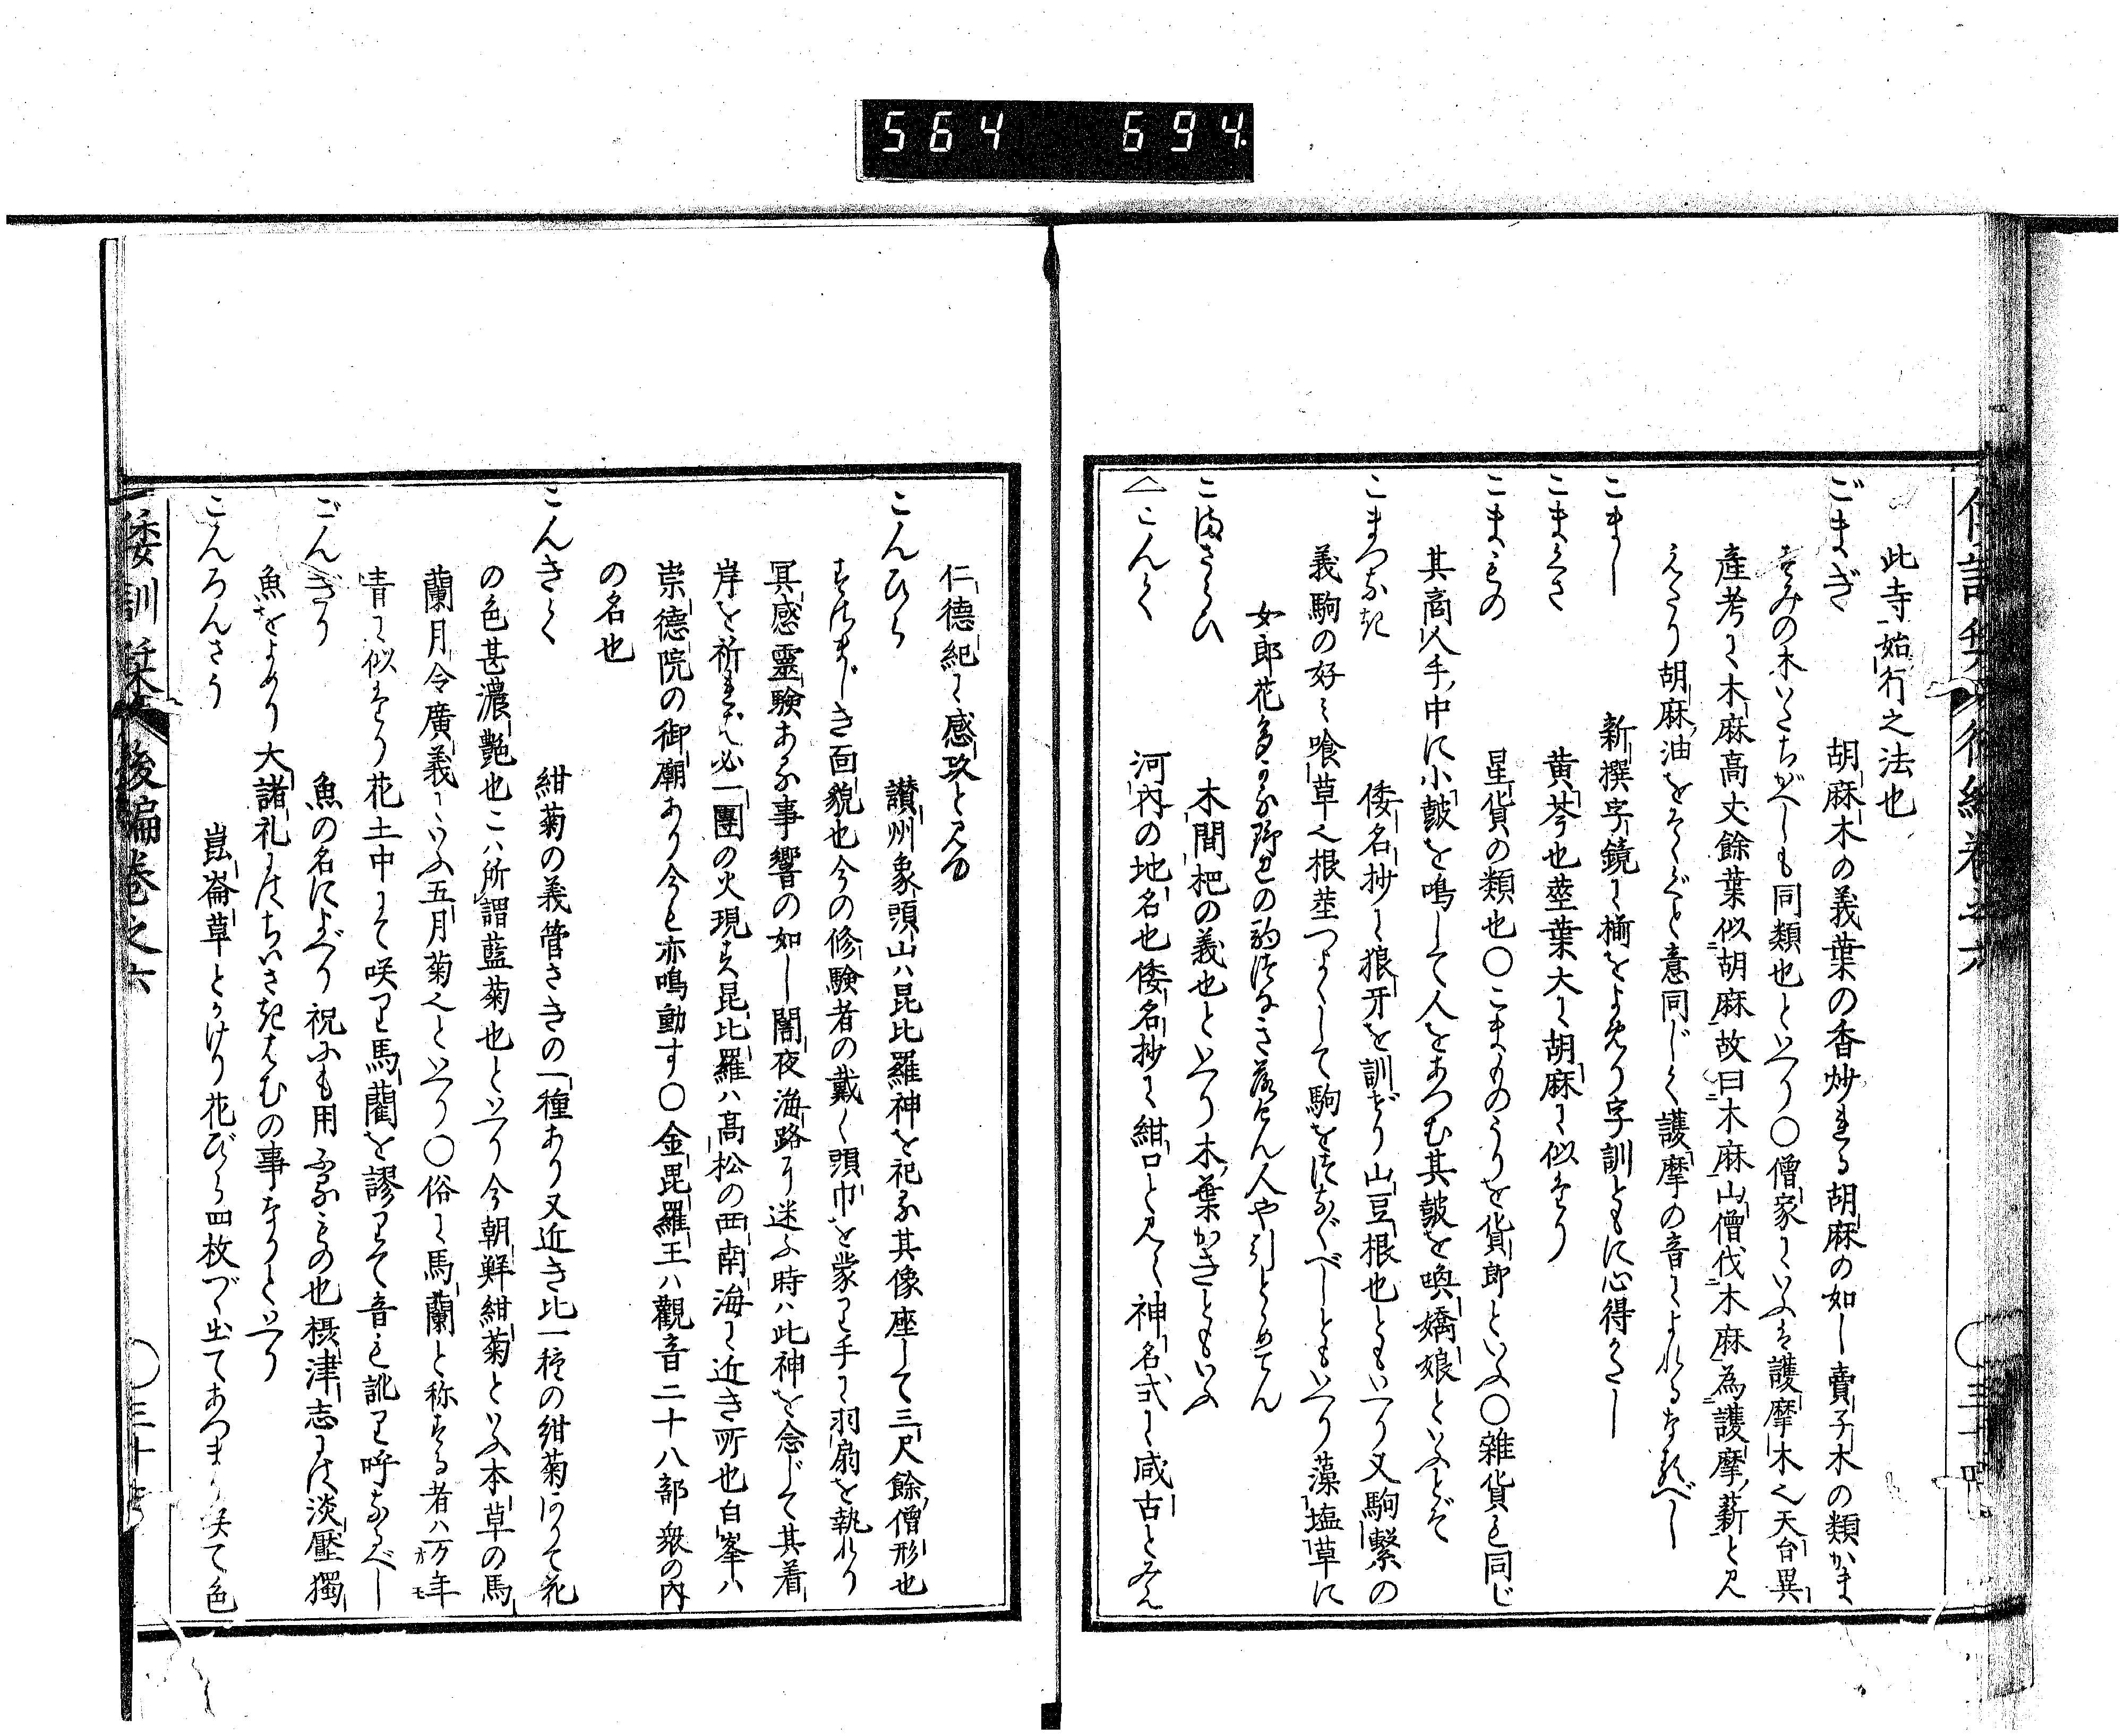 564 694
此寺始行之法也
ごまぎ 胡麻木の義葉の香炒れる胡麻の如し賣子木の類かま
ずみの木いたちがへしも同類也といへり〇僧家にいふは護摩木也天台異
產考に木麻高丈餘葉似胡麻故曰木麻山僧伐木麻為護摩薪と見
えたり胡麻油をそゝぐと意同じく護摩の音によれるなるべし
こまし 新撰字鏡に楡をよめり字訓ともに心得がたし
こまくさ 黄芩也莖葉大に胡麻に似たり
こまもの 星貨の類也〇こまものうりを貨郎といふ〇雜貨も同じ
其商人手中に小皷を鳴して人をあつむ其皷を喚嬌娘といふとぞ
こまつなぎ 倭名抄に狼牙を訓ぜり山豆根也ともいへり又駒繫の
義駒の好み喰草也根莖つよくして駒をつなぐべしともいへり藻塩草に
女郎花多かる野辺の駒つなき落さん人や引とゝめてん
こまさらひ 木間杷の義也といへり木葉かきともいふ
△こんく 河内の地名也倭名抄に紺口と見ゆ神名式に咸古とみえ
仁德紀に感玖と見ゆ
こんひら 讃州象頭山ハ昆比羅神を祀る其像座して三尺餘僧形也
すさまじき面貌也今の修驗者の戴く頭巾を蒙り手に羽扇を執れり
冥感靈驗ある事響の如し闇夜海路に迷ふ時ハ此神を念じて其着
岸を祈れば必一團の火現す昆比羅ハ高松の西南海に近き所也白峯ハ
崇德院の御廟あり今も亦鳴動す〇金毘羅王ハ觀音二十八部衆の内
の名也
こんきく 紺菊の義管ささきの一種あり又近き比一種の紺菊ありて花
の色甚濃艶也こハ所謂藍菊也といへり今朝鮮紺菊といふ本草の馬
蘭月令廣義にいふ五月菊也といへり〇俗に馬蘭と称する者ハ万年
青に似たり花土中にて咲り馬藺を謬りて音も訛り呼なるべし
ごんぎり 魚の名によべり祝にも用ふるもの也摂津志には淡壓獨
魚をよめり大諸礼にはちいさきはむの事なりといへり
こんろんさう 崑崙草とかけり花びら四枚づゝ出てあつまり咲て色
倭訓栞 後編卷之六